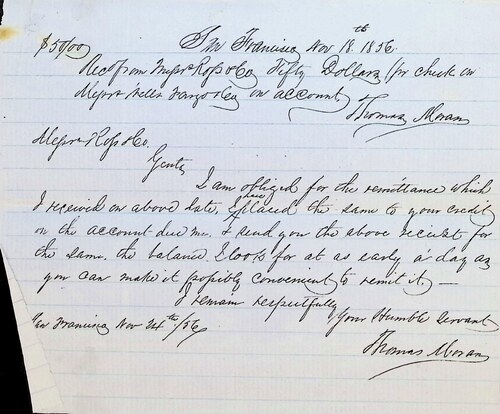 $50/00 San Francisco Nov 18th 1856
Recd from Messrs Ross & Co Fifty Dollars (pr check on
Messrs Wells Fargo & Co on account
Thomas Moran
Messrs Ross & Co.
Gents
I am obliged for the remittance which
I received on above date, I have placed the same to your credit
on the account due me. I send you the above reciept for
the same. the balance I look for at as early a day as
you can make it possibly convenient to remit it —
I remain respectfully
Your Humble Servant
San Francisco Nov 24th/56
Thomas Moran